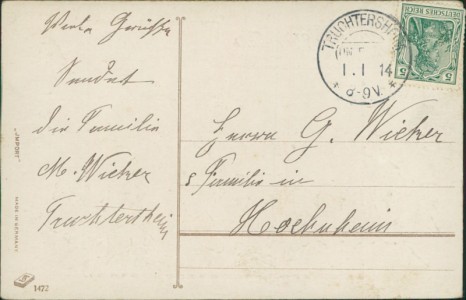 Viele Grüße
Sendet
die Familie
M. Wicker
Truchtersheim
Herrn G. Wicker
Familie in
Hoenheim
TRUCHTERSHEIM
1.1 14
8-9V.
DEUTSCHES REICH
5 5
"IMPORT"
MADE IN GERMANY
1472